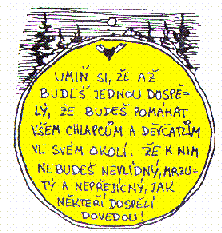 UMIŇ SI, ŽE AŽ
BUDEŠ JEDNOU DOSPĚ-
LÝ, ŽE BUDEŠ POMÁHAT
VŠEM CHLAPCŮM A DĚVČATŮM
VE SVÉM OKOLÍ. ŽE K NIM
NEBUDEŠ NEVLÍDNÝ, MRZU-
TÝ A NEPŘEJÍCNÝ, JAK
NĚKTEŘÍ DOSPĚLÍ
DOVEDOU!